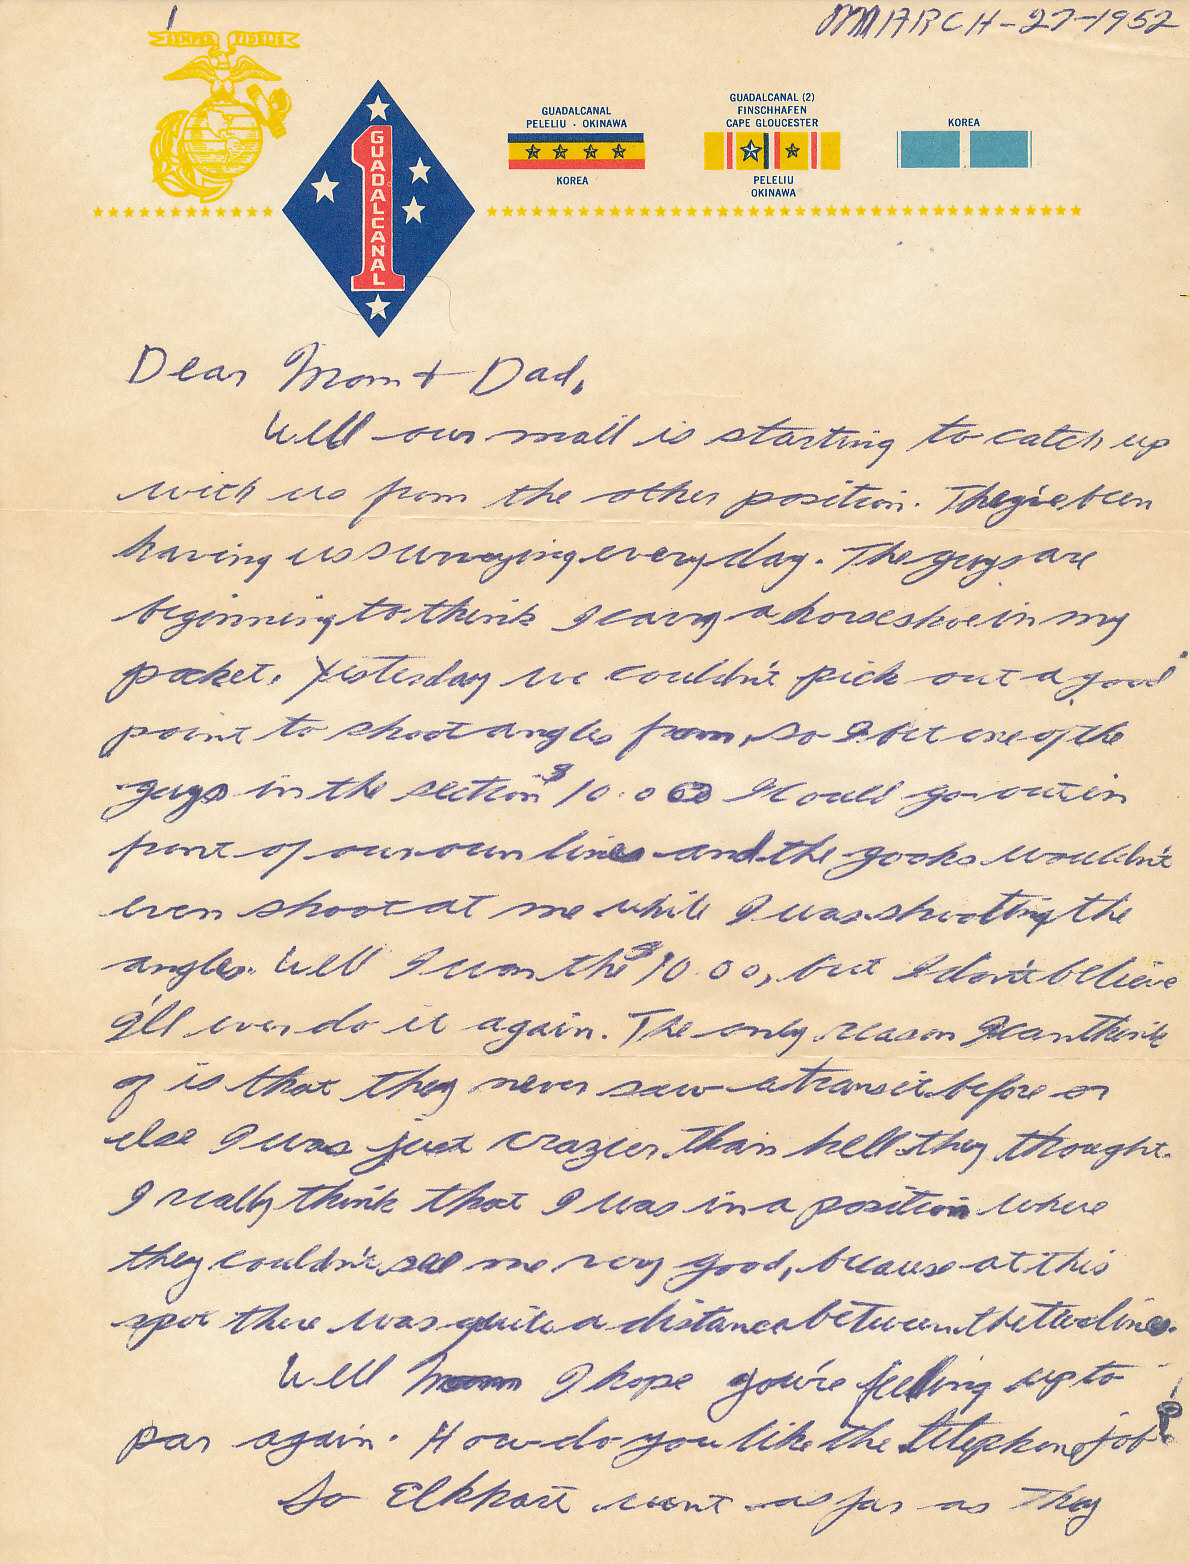 MARCH-27-1952
SEMPER FIDELIS
GUADALCANAL
PELELIU · OKINAWA
KOREA
GUADALCANAL (2)
FINSCHHAFEN
CAPE GLOUCESTER
PELELIU
OKINAWA
KOREA
1
GUADALCANAL
Dear Mom + Dad,
Well our mail is starting to catch up
with us from the other position. They've been
having us surveying every day. The guys are
beginning to think I carry a horseshoe in my
pocket. Yesterday we couldn't pick out a good
point to shoot angles from, so I bet one of the
guys in the section $10.00 I could go out in
front of our own lines and the gooks wouldn't
even shoot at me while I was shooting the
angles. Well I won the $10.00, but I don't believe
I'll ever do it again. The only reason I can think
of is that they never saw a transit before or
else I was just crazier than hell they thought.
I really think that I was in a position where
they couldn't see me very good, because at this
spot there was quite a distance between the two lines.
Well Mom I hope you're feeling up to
par again. How do you like the telephone job?
So Elkhart went as far as they